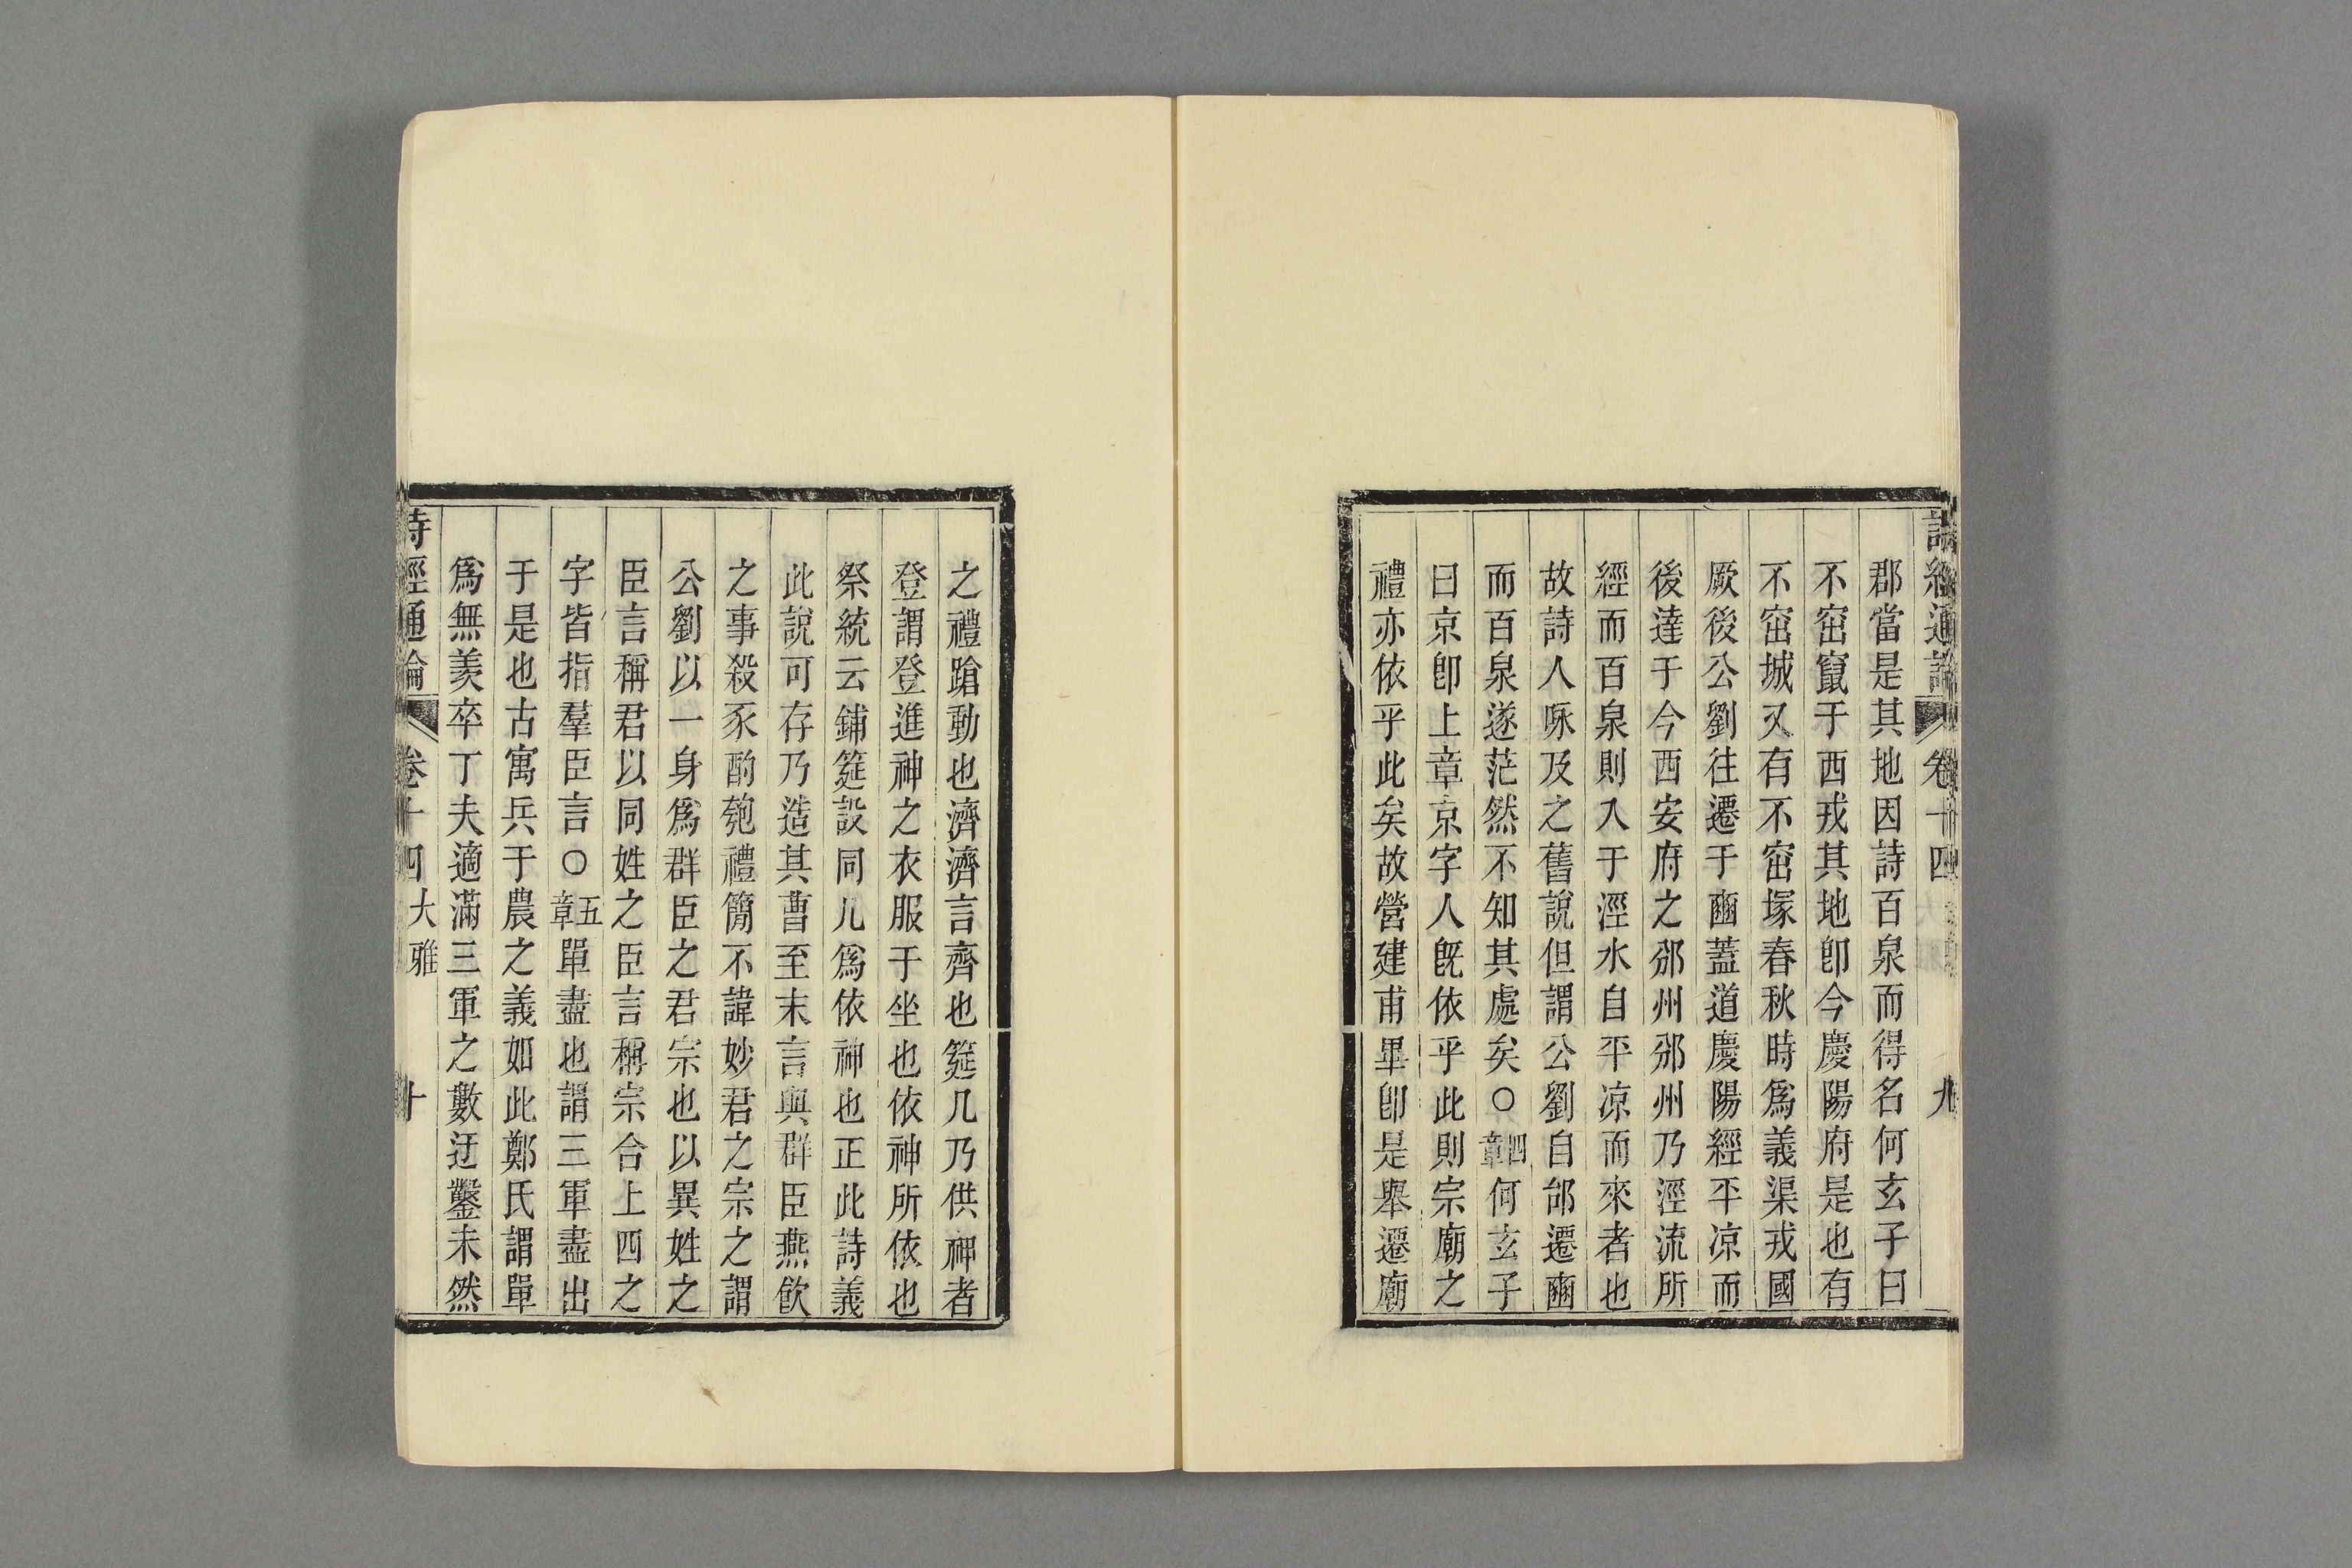 詩經通論 卷十四 九
郡當是其地因詩百泉而得名何玄子曰
不窋竄于西戎其地卽今慶陽府是也有
不窋城又有不窋塚春秋時爲義渠戎國
厥後公劉往遷于豳蓋道慶陽經平凉而
後達于今西安府之邠州邠州乃涇流所
經而百泉則入于涇水自平凉而來者也
故詩人咏及之舊說但謂公劉自邰遷豳
而百泉遂茫然不知其處矣○四章何玄子
曰京卽上章京字人旣依乎此則宗廟之
禮亦依乎此矣故營建甫畢卽是舉遷廟
之禮蹌動也濟濟言齊也筵几乃供神者
登謂登進神之衣服于坐也依神所依也
祭統云鋪筵設同几爲依神也正此詩義
此說可存乃造其曹至末言與群臣燕飲
之事殺豕酌匏禮簡不諱妙君之宗之謂
公劉以一身爲群臣之君宗也以異姓之
臣言稱君以同姓之臣言稱宗合上四之
字皆指羣臣言○五章單盡也謂三軍盡出
于是也古寓兵于農之義如此鄭氏謂單
爲無羨卒丁夫適滿三軍之數迂鑿未然
詩經通論 卷十四 大雅 十